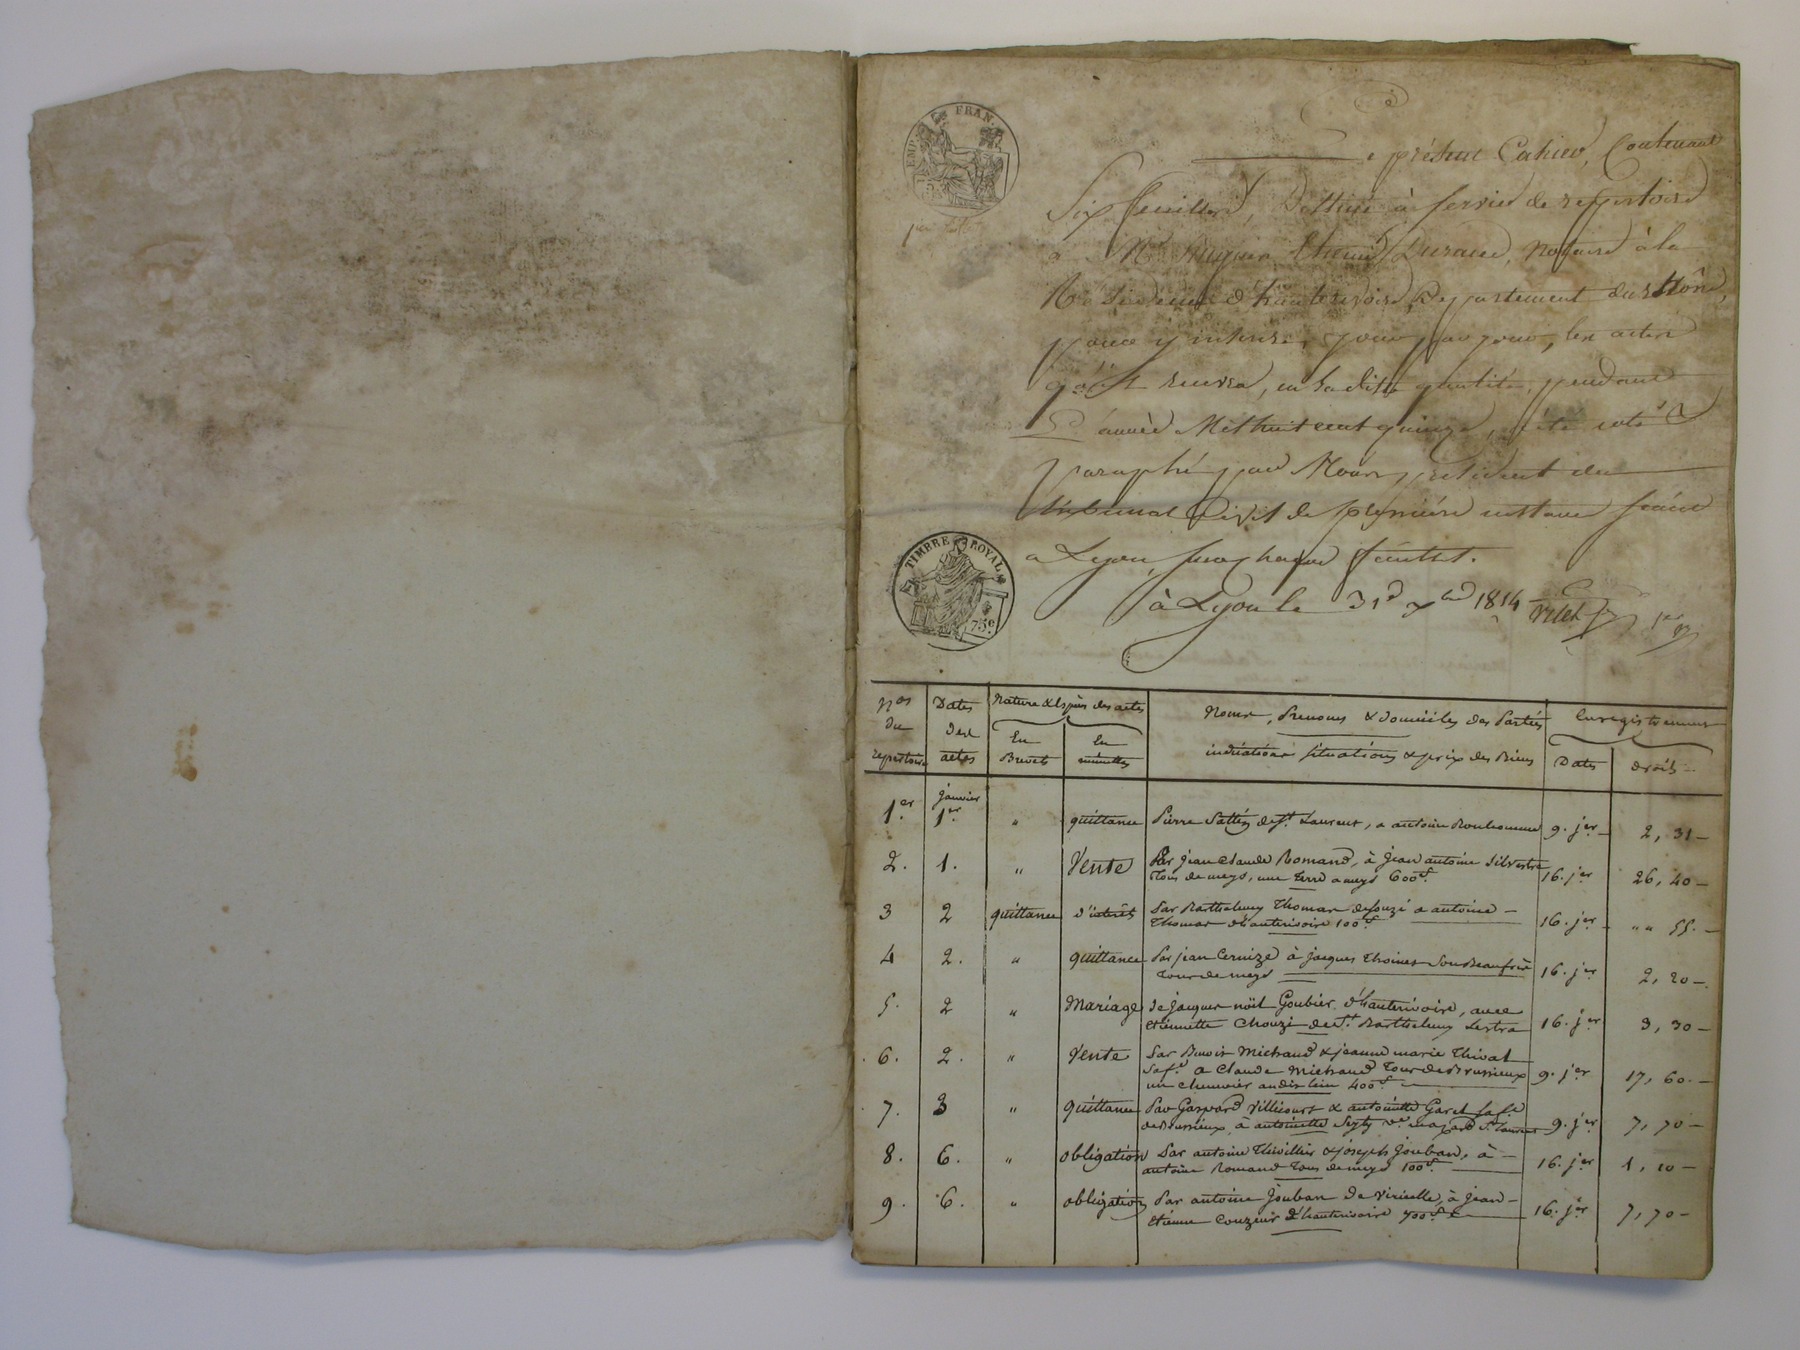 EMP. FRAN.
présent Cahier, Contenant
Six feuillets, Destiné à servir de repertoire
à Me Durand, Notaire à la
Résidence d'hauterivoire, Département du Rhône,
pour y inscrire, jour par jour, les actes
qu'il recevra, en sa dite qualité, pendant
L'année Mil huit cent quinze, a été coté &
paraphé par Nous, président du
tribunal Civil de première instance séant
a Lyon, sur chaque feuillet.
à Lyon le 31 Xbre 1814
TIMBRE ROYAL
75c
Nos Du repertoire
Dates des actes
Nature & Espèces des actes
En Brevets
En minuttes
Noms, Prenoms & domiciles des Parties
indications situations & prix des Biens
Enregistrement
Dates
droits
janvier
1er. 1er " quittance Pierre de St. Laurent, a antoine Bonhomme 9. jer 2, 31
2. 1. " Vente Par jean Claude Romand, à jean antoine Silvestre
Tous de meys, une terre a meys 600f. 16. jer 26, 40
3 2 quittance d'intérêts Par Barthelemy Thomas de a antoine
Thomas d'hauterivoire 100f. 16. jer " " 55.
4 2. " quittance Par jean à jacques Thoinet Son Beaufrère
Tous de meys 16. jer 2, 20
5. 2 " Mariage de jacques noël Goubier d'hauterivoire, avec
etiennette Chouzi de St. Barthelemy Lestra 16. jer 3, 30
6. 2. " Vente Par Benoit Michaud & jeanne marie Thivat
sa fe. a Claude Michaud Tous de Brussieux
un chenevier audit lieu 400f 9. jer 17, 60.
7. 3 " quittance Par Gaspard Villecourt & antoinette Garet sa fe.
de Brussieux, à antoinette ve. St. Laurent 9. jer 7, 70
8. 6. " obligation Par antoine Thivillier & joseph Jouban, à
antoine Romand Tous de meys 100f. 16. jer 1, 10
9. 6. " obligation Par antoine Jouban de Viricelle, à jean
Etienne Couzeur d'hauterivoire 700f. 16. jer 7, 70